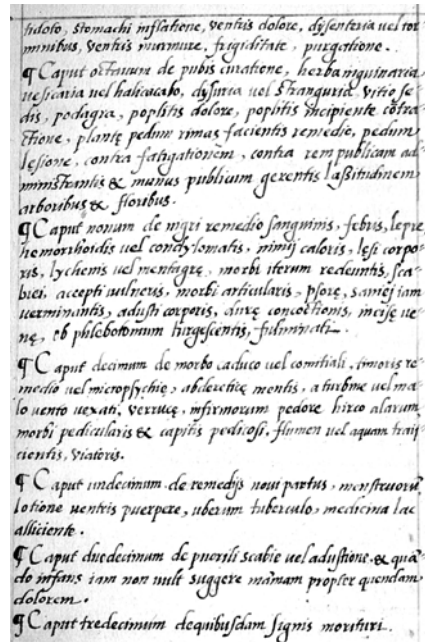 tidoto, stomachi inflatione, ventris dolore, dysenteria vel tor
minibus, ventris murmure, frigiditate, purgatione.
¶ Caput octauum de pubis curatione, herba inguinaria
vesicaria vel halicacabo, dysuria vel stranguria, vitio se-
dis, podagra, poplitis dolore, poplitis incipiente cōtra
ctione, plantę pedum rimas facientis remedio, pedum
lęsione, contra fatigationem, contra rem publicam ad-
ministrantis & munus publicum gerentis laßitudinem
arboribus & floribus.
¶ Caput nonum de nigri remedio sanguinis, febris, leprę
hemorrhoidis vel condylomatis, nimij caloris, lęsi corpo-
ris, lychenis vel mentagrę, morbi iterum redeuntis, sca-
biei, accepti vulneris, morbi articularis, psorę, saniej iam
verminantis, adusti corporis, durę concoctionis, incisę ve-
nę, ob phlebotomum turgescentis, fulminati.
¶ Caput decimum de morbo caduco vel comitiali, timoris re-
medio vel micropsychię, abdereticę mentis, a turbine vel ma-
lo vento vexati, verrucę, infirmorum pedore hirco alarum
morbi pedicularis & capitis pedicosi, flumen vel aquam traij-
cientis, viatoris.
¶ Caput undecimum de remedijs novi partus, menstruorū
lotione ventris puerpere, uberum tuberculo, medicina lac
alliciente.
¶ Caput duedecimum de puerili scabie vel adustione & quā
do infans iam non vult suggere mamam propter quendam
dolorem.
¶ Caput tredecimum de quibusdam signis morituri.